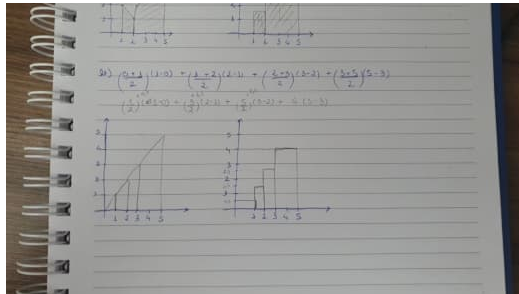 1 2 3 4 5
1 2 3 4 5
(0+1/2)(1-0) + (1+2/2)(2-1) + (2+3/2)(3-2) + (3+5/2)(5-3)
(1/2)(1-0) + (3/2)(2-1) + (5/2)(3-2) + 4 (5-3)
5 5
4 4
3 3
2 2
1 1
1 2 3 4 5 1 2 3 4 5